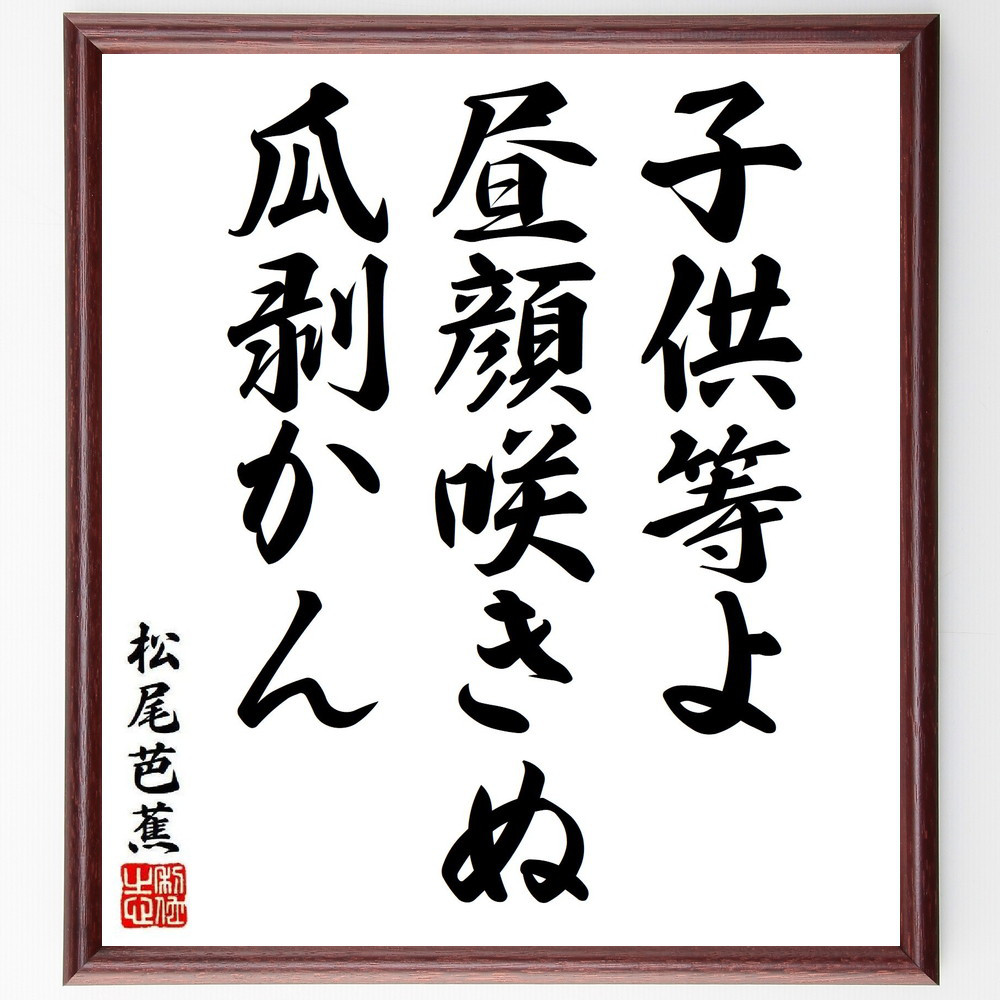 子供等よ
昼顔咲きぬ
瓜剥かん
松尾芭蕉